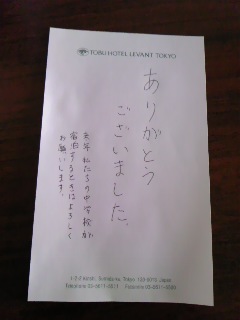 TOBU HOTEL LEVANT TOKYO
ありがとう
ございました。
来年私たちの中学校が
宿泊するときはよろしく
お願いします。
1-2-2 Kinshi, Sumida-ku, Tokyo 130-0013 Japan